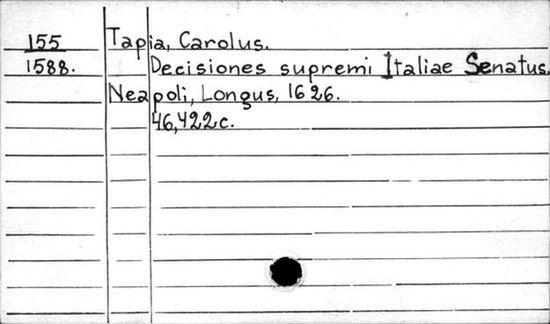 155 Tapia, Carolus.
1588. Decisiones supremi Italiae Senatus.
Neapoli, Longus, 1626.
46,422c.